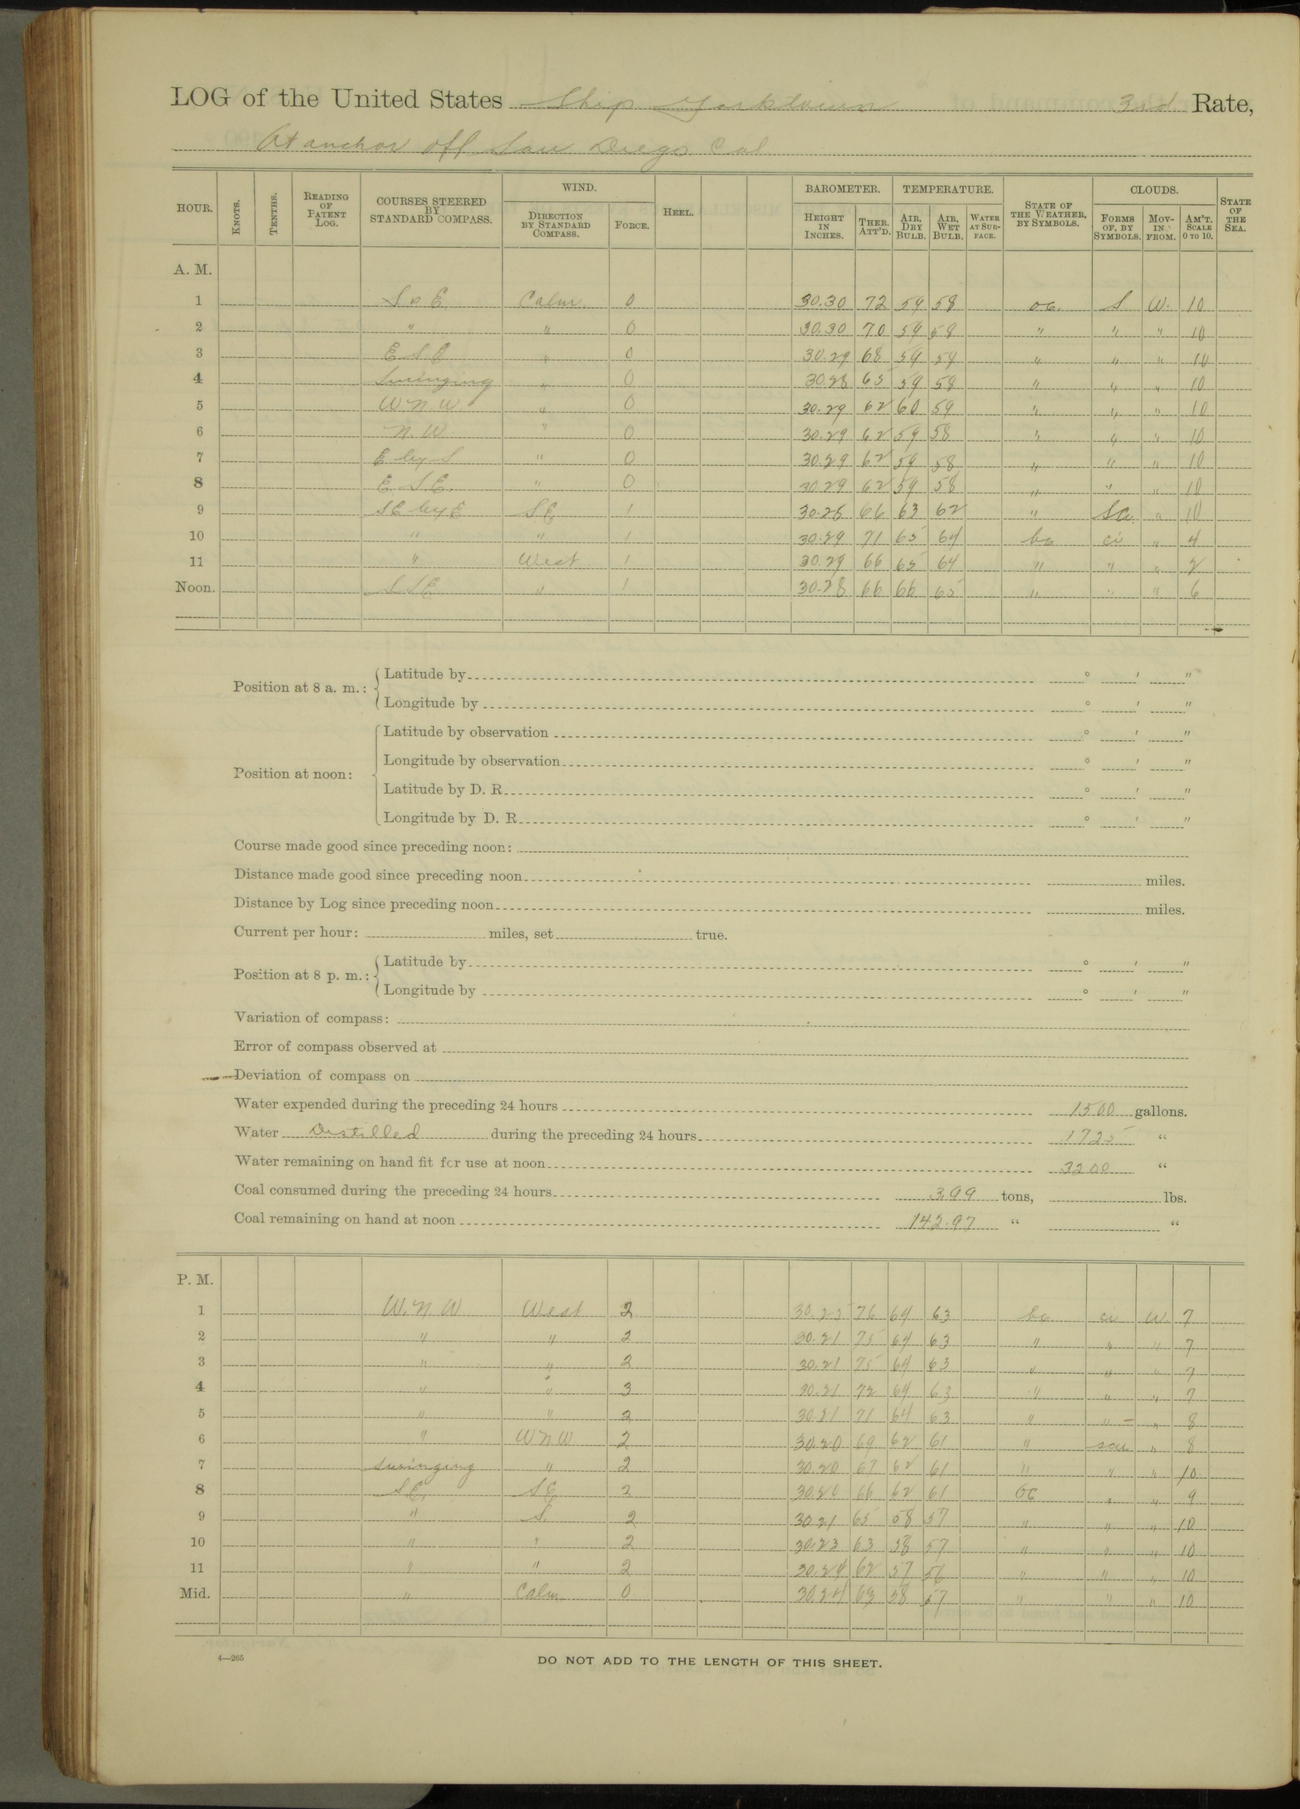 LOG of the United States Ship Yorktown 3rd Rate,
At anchor off San Diego Cal
HOUR. KNOTS. TENTHS. READING OF PATENT LOG. COURSES STEERED BY STANDARD COMPASS. WIND. DIRECTION BY STANDARD COMPASS. FORCE. HEEL. BAROMETER. HEIGHT IN INCHES. THER. ATT'D. TEMPERATURE. AIR, DRY BULB. AIR, WET BULB. WATER AT SURFACE. STATE OF THE WEATHER, BY SYMBOLS. CLOUDS. FORMS OF, BY SYMBOLS. MOVIN FROM. AM'T. SCALE 0 TO 10. STATE OF THE SEA.
A. M.
1 Calm 0 30.30 72 59 58 oc. S W. 10
2 " " 0 30.30 70 59 58 " " " 10
3 " 0 30.29 68 59 59 " " " 10
4 Swinging " 0 30.28 65 59 58 " " " 10
5 W N W " 0 30.29 62 60 59 " " " 10
6 N. W " 0 30.29 62 59 58 " " " 10
7 E by S " 0 30.29 62 59 58 " " " 10
8 E. S E. " 0 30.29 62 59 58 " " " 10
9 SE by E SE 1 30.28 66 63 62 " " 10
10 " " 1 30.29 71 65 64 bc ci " 4
11 " West 1 30.29 66 65 64 " " " 2
Noon. S SE " 1 30.28 66 66 65 " " " 6
Position at 8 a. m.: Latitude by ° ' "
Longitude by ° ' "
Position at noon: Latitude by observation ° ' "
Longitude by observation ° ' "
Latitude by D. R. ° ' "
Longitude by D. R. ° ' "
Course made good since preceding noon:
Distance made good since preceding noon miles.
Distance by Log since preceding noon miles.
Current per hour: miles, set true.
Position at 8 p. m.: Latitude by ° ' "
Longitude by ° ' "
Variation of compass:
Error of compass observed at
Deviation of compass on
Water expended during the preceding 24 hours 1500 gallons.
Water Distilled during the preceding 24 hours 1725 "
Water remaining on hand fit for use at noon 3200 "
Coal consumed during the preceding 24 hours 3.99 tons, lbs.
Coal remaining on hand at noon 142.97 " "
P. M.
1 W. N W West 2 30.25 76 64 63 bc ci W 7
2 " " 2 30.21 75 64 63 " " " 7
3 " " 2 30.21 75 64 63 " " " 7
4 " " 3 30.21 72 64 63 " " " 7
5 " " 2 30.21 71 64 63 " " " 8
6 " W N W 2 30.20 69 62 61 " " 8
7 Swinging " 2 30.20 67 62 61 " " " 10
8 SE. SE 2 30.20 66 62 61 oc " " 9
9 " S. 2 30.21 65 58 57 " " " 10
10 " " 2 30.23 63 58 57 " " " 10
11 " " 2 30.24 62 57 56 " " " 10
Mid. " Calm 0 30.24 63 58 57 " " " 10
4—265
DO NOT ADD TO THE LENGTH OF THIS SHEET.